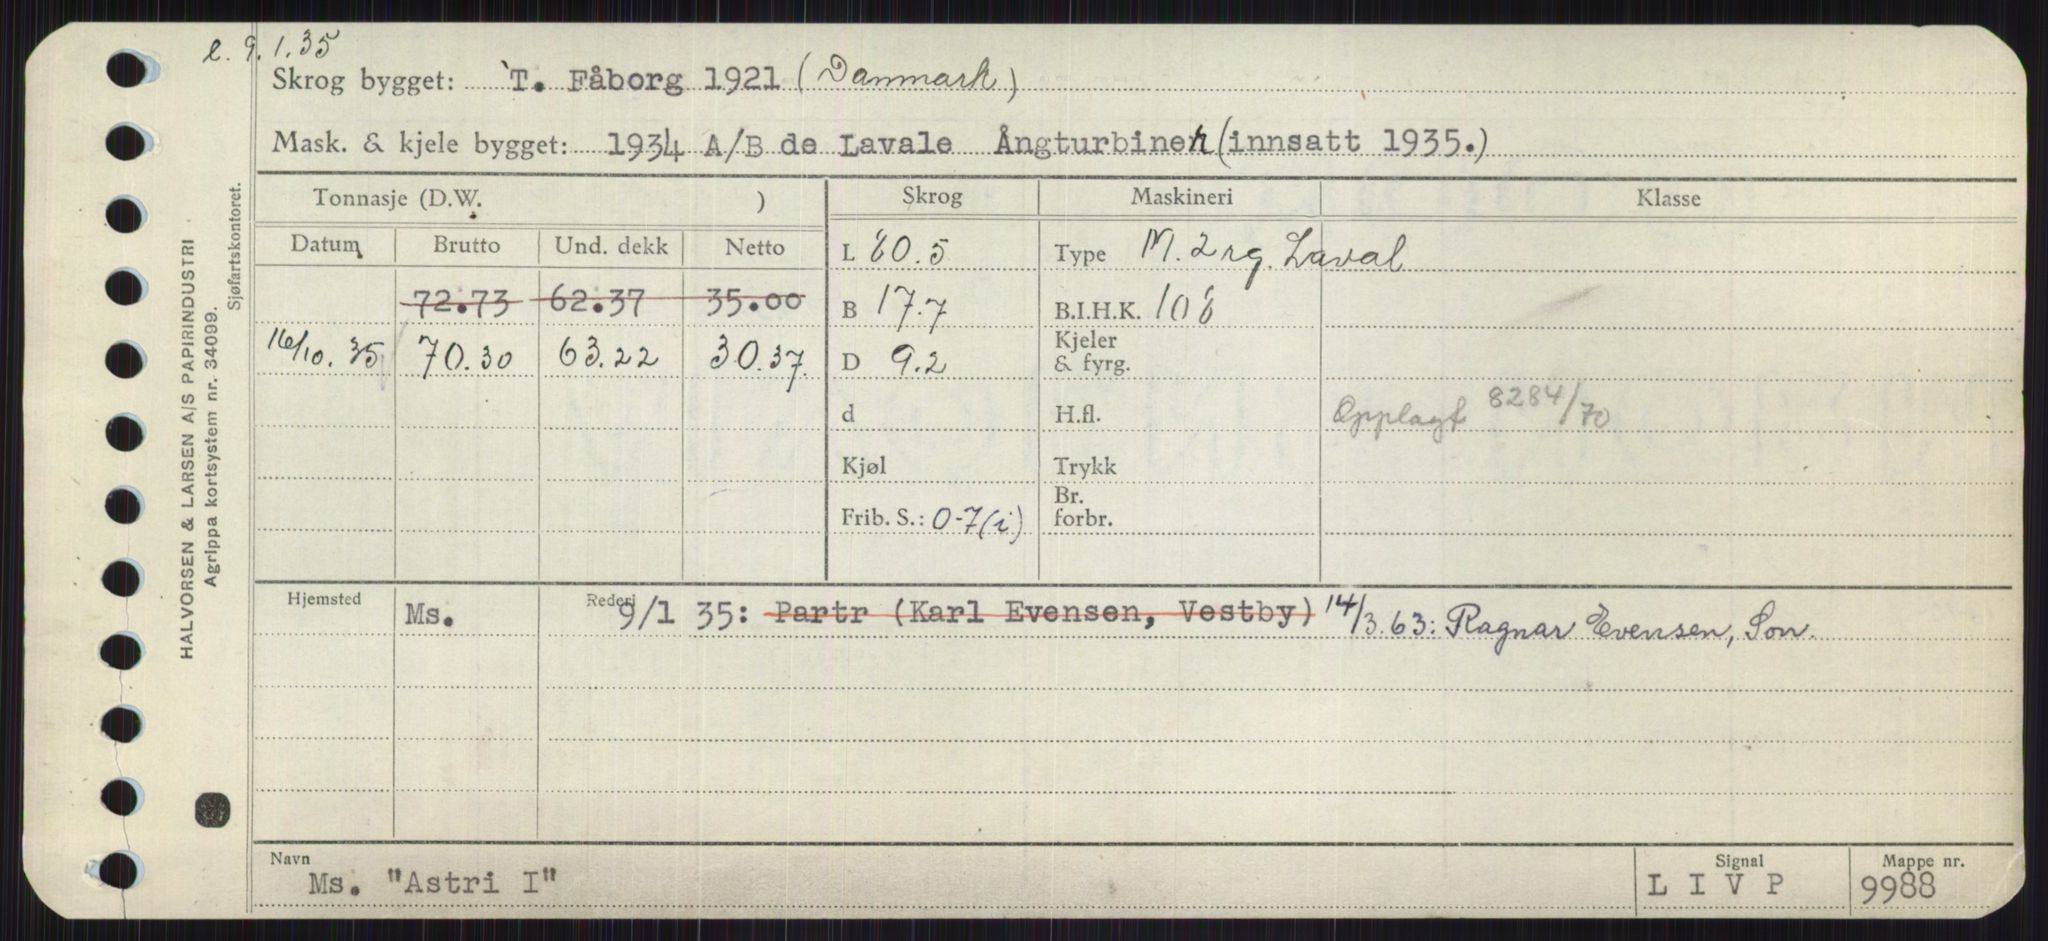 e. 9.1.35
Skrog bygget: T. Fåborg 1921 (Danmark)
Mask. & kjele bygget: 1934 A/B de Lavale Ångturbinen (innsatt 1935.)
Tonnasje (D.W. ) Skrog Maskineri Klasse
Datum Brutto Und. dekk Netto L 60.5 Type M. 2 rg. Laval
72.73 62.37 35.00 B 17.7 B.I.H.K. 106
16/10. 35 70.30 63.22 30.37 D 9.2 Kjeler & fyrg.
d H.fl. Opplagt 8284/70
Kjøl Trykk
Frib. S.: 0-7(i) Br. forbr.
Hjemsted Ms. Rederi 9/1 35: Partr (Karl Evensen, Vestby) 14/3.63: Ragnar Evensen, Son.
Navn Signal Mappe nr.
Ms. "Astri I" L I V P 9988
HALVORSEN & LARSEN A/S PAPIRINDUSTRI
Agrippa kortsystem nr. 34099.
Sjøfartskontoret.